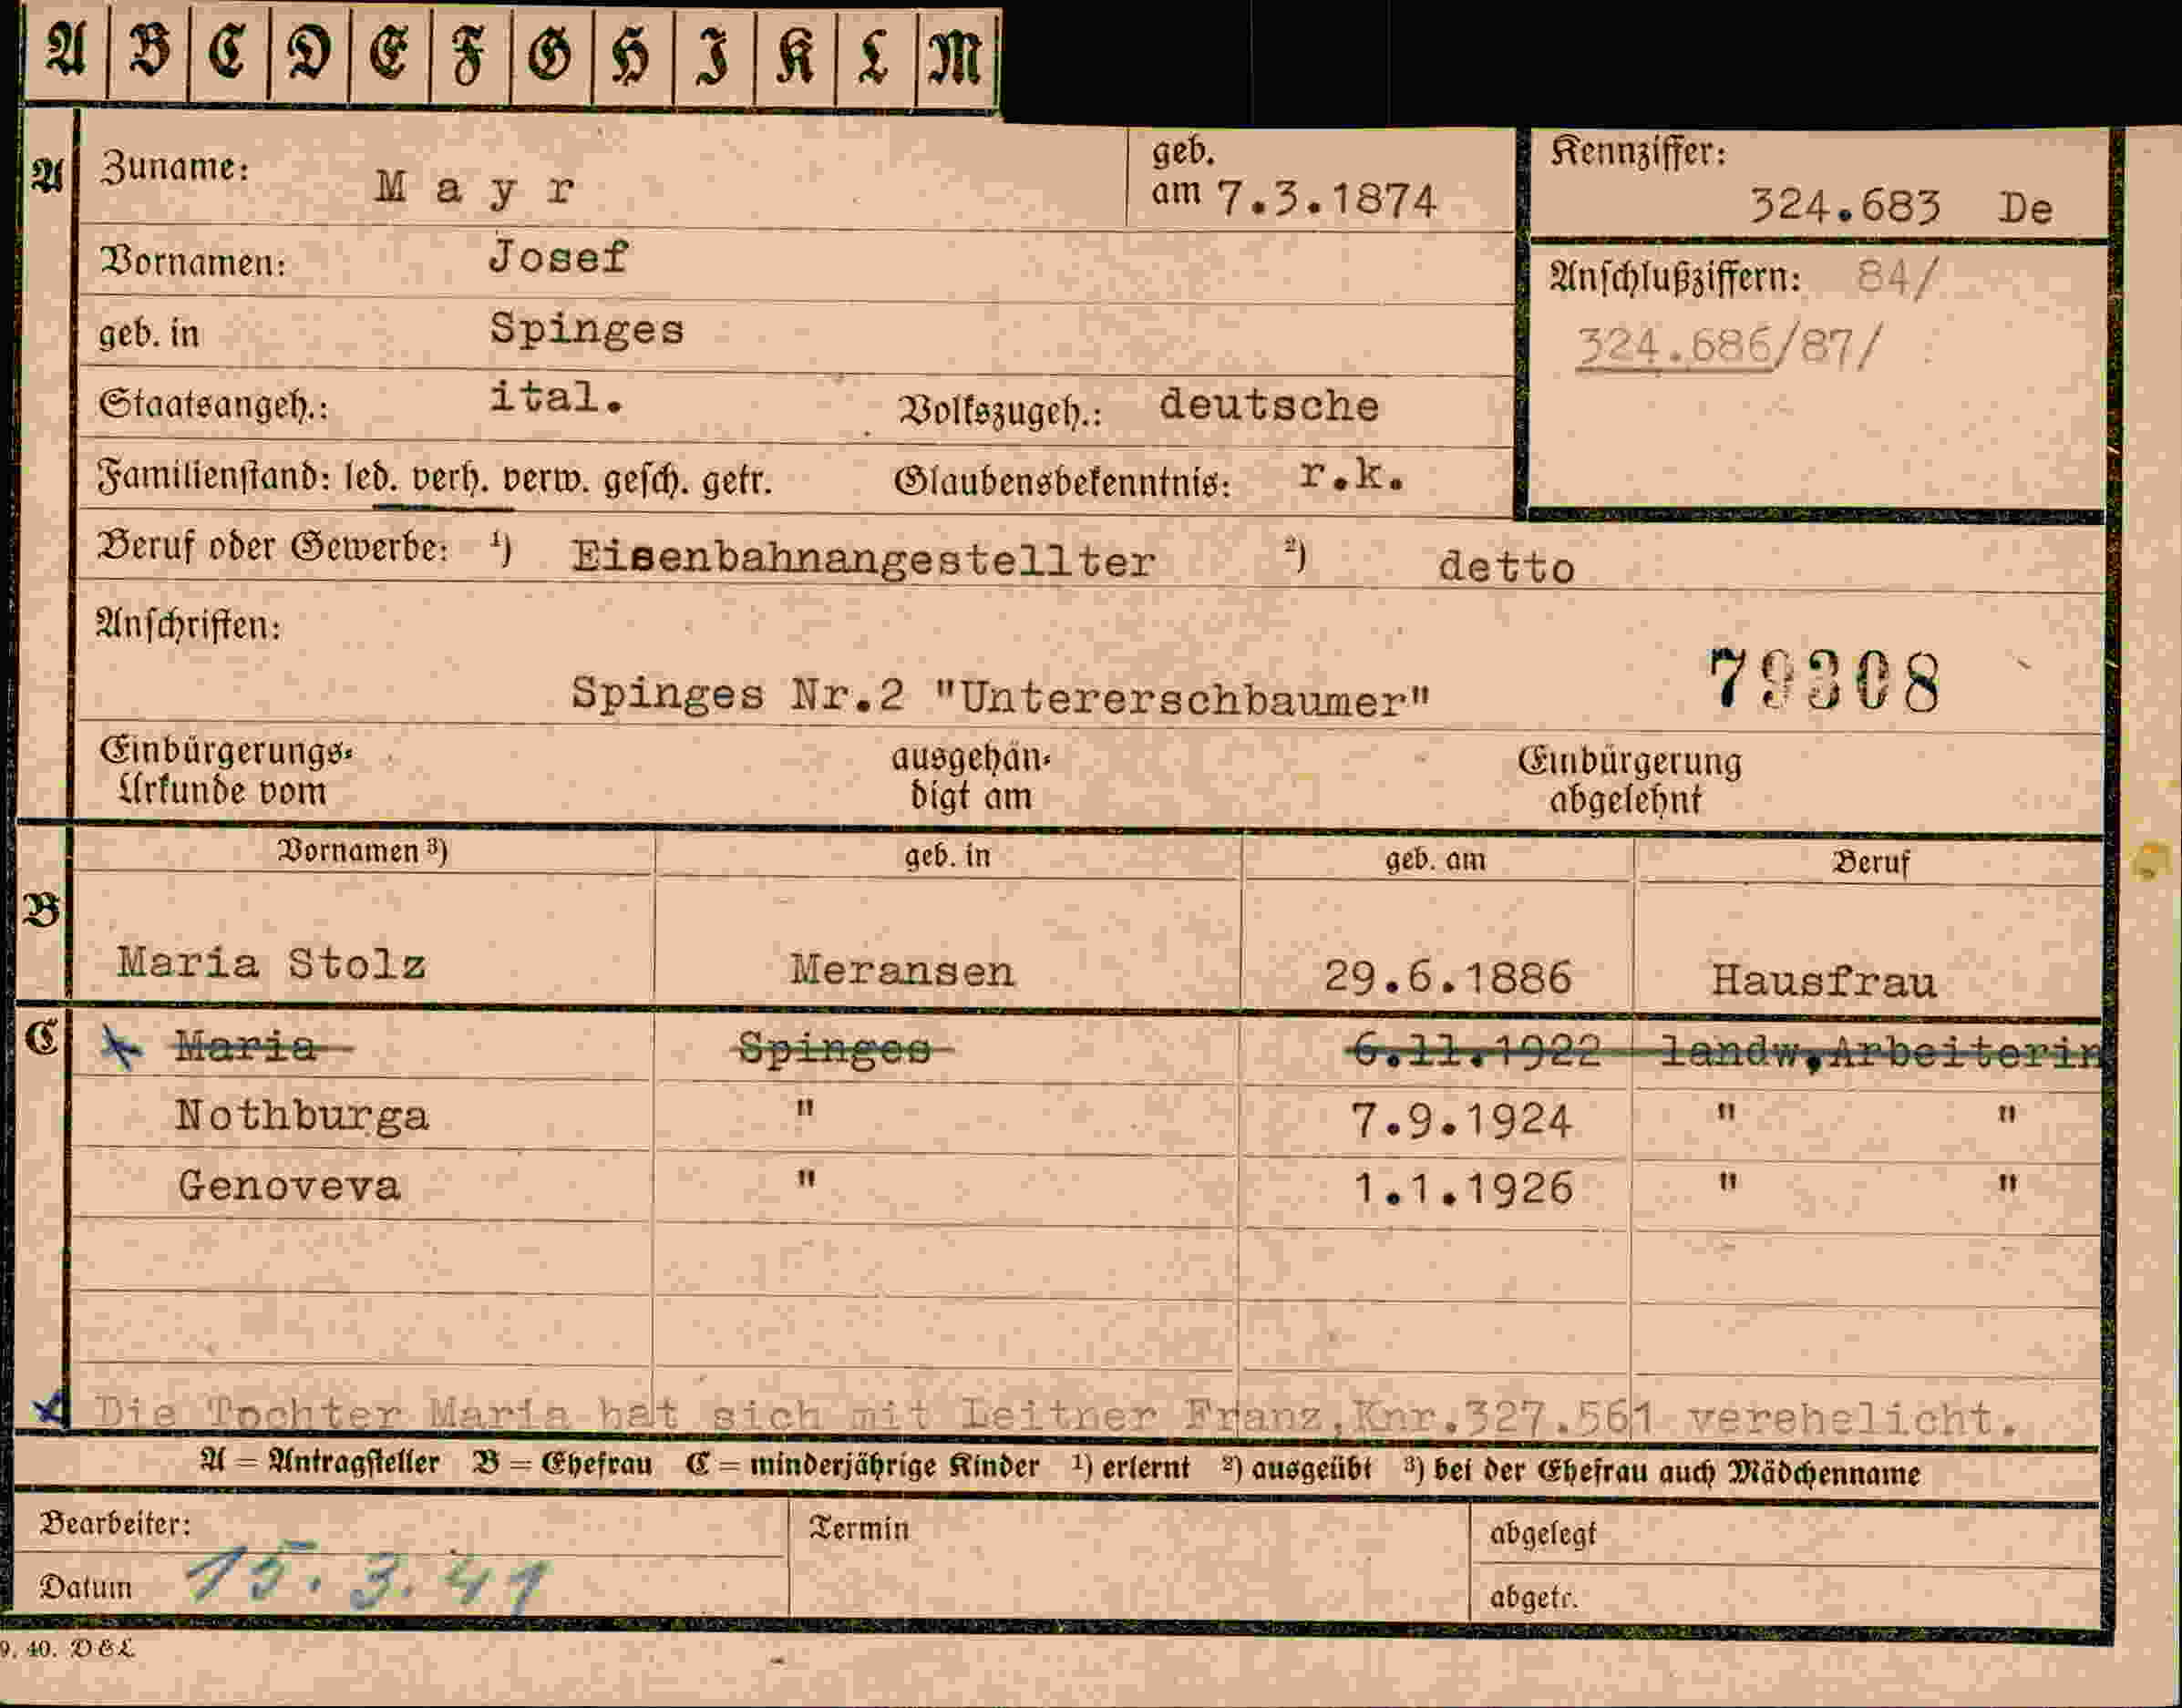 A B C D E F G H I K L M
A Zuname: Mayr geb. am 7.3.1874 Kennziffer: 324.683 De
Vornamen: Josef Anschlußziffern: 84/
geb. in Spinges 324.686/87/
Staatsangeh.: ital. Volkszugeh.: deutsche
Familienstand: led. verh. verw. gesch. getr. Glaubensbekenntnis: r.k.
Beruf oder Gewerbe: ¹) Eisenbahnangestellter ²) detto
Anschriften:
Spinges Nr.2 "Untererschbaumer" 79308
Einbürgerungs- ausgehän- Einbürgerung
Urkunde vom digt am abgelehnt
Vornamen ³) geb. in geb. am Beruf
B
Maria Stolz Meransen 29.6.1886 Hausfrau
C Maria Spinges 6.11.1922 landw.Arbeiterin
Nothburga " 7.9.1924 " "
Genoveva " 1.1.1926 " "
Die Tochter Maria hat sich mit Leitner Franz,Knr.327.561 verehelicht.
A = Antragsteller B = Ehefrau C = minderjährige Kinder ¹) erlernt ²) ausgeübt ³) bei der Ehefrau auch Mädchenname
Bearbeiter: Termin abgelegt
Datum 15.3.41 abgetr.
9. 40. D&L